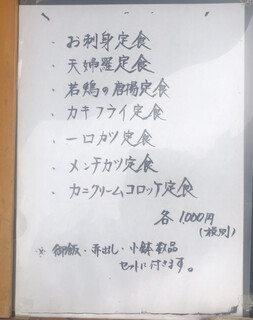 ・お刺身定食
・天婦羅定食
・若鶏の唐揚定食
・カキフライ定食
・一口カツ定食
・メンチカツ定食
・カニクリームコロッケ定食
各1,000円
(税別)
※御飯・赤出し・小鉢数品
セットに付きます。